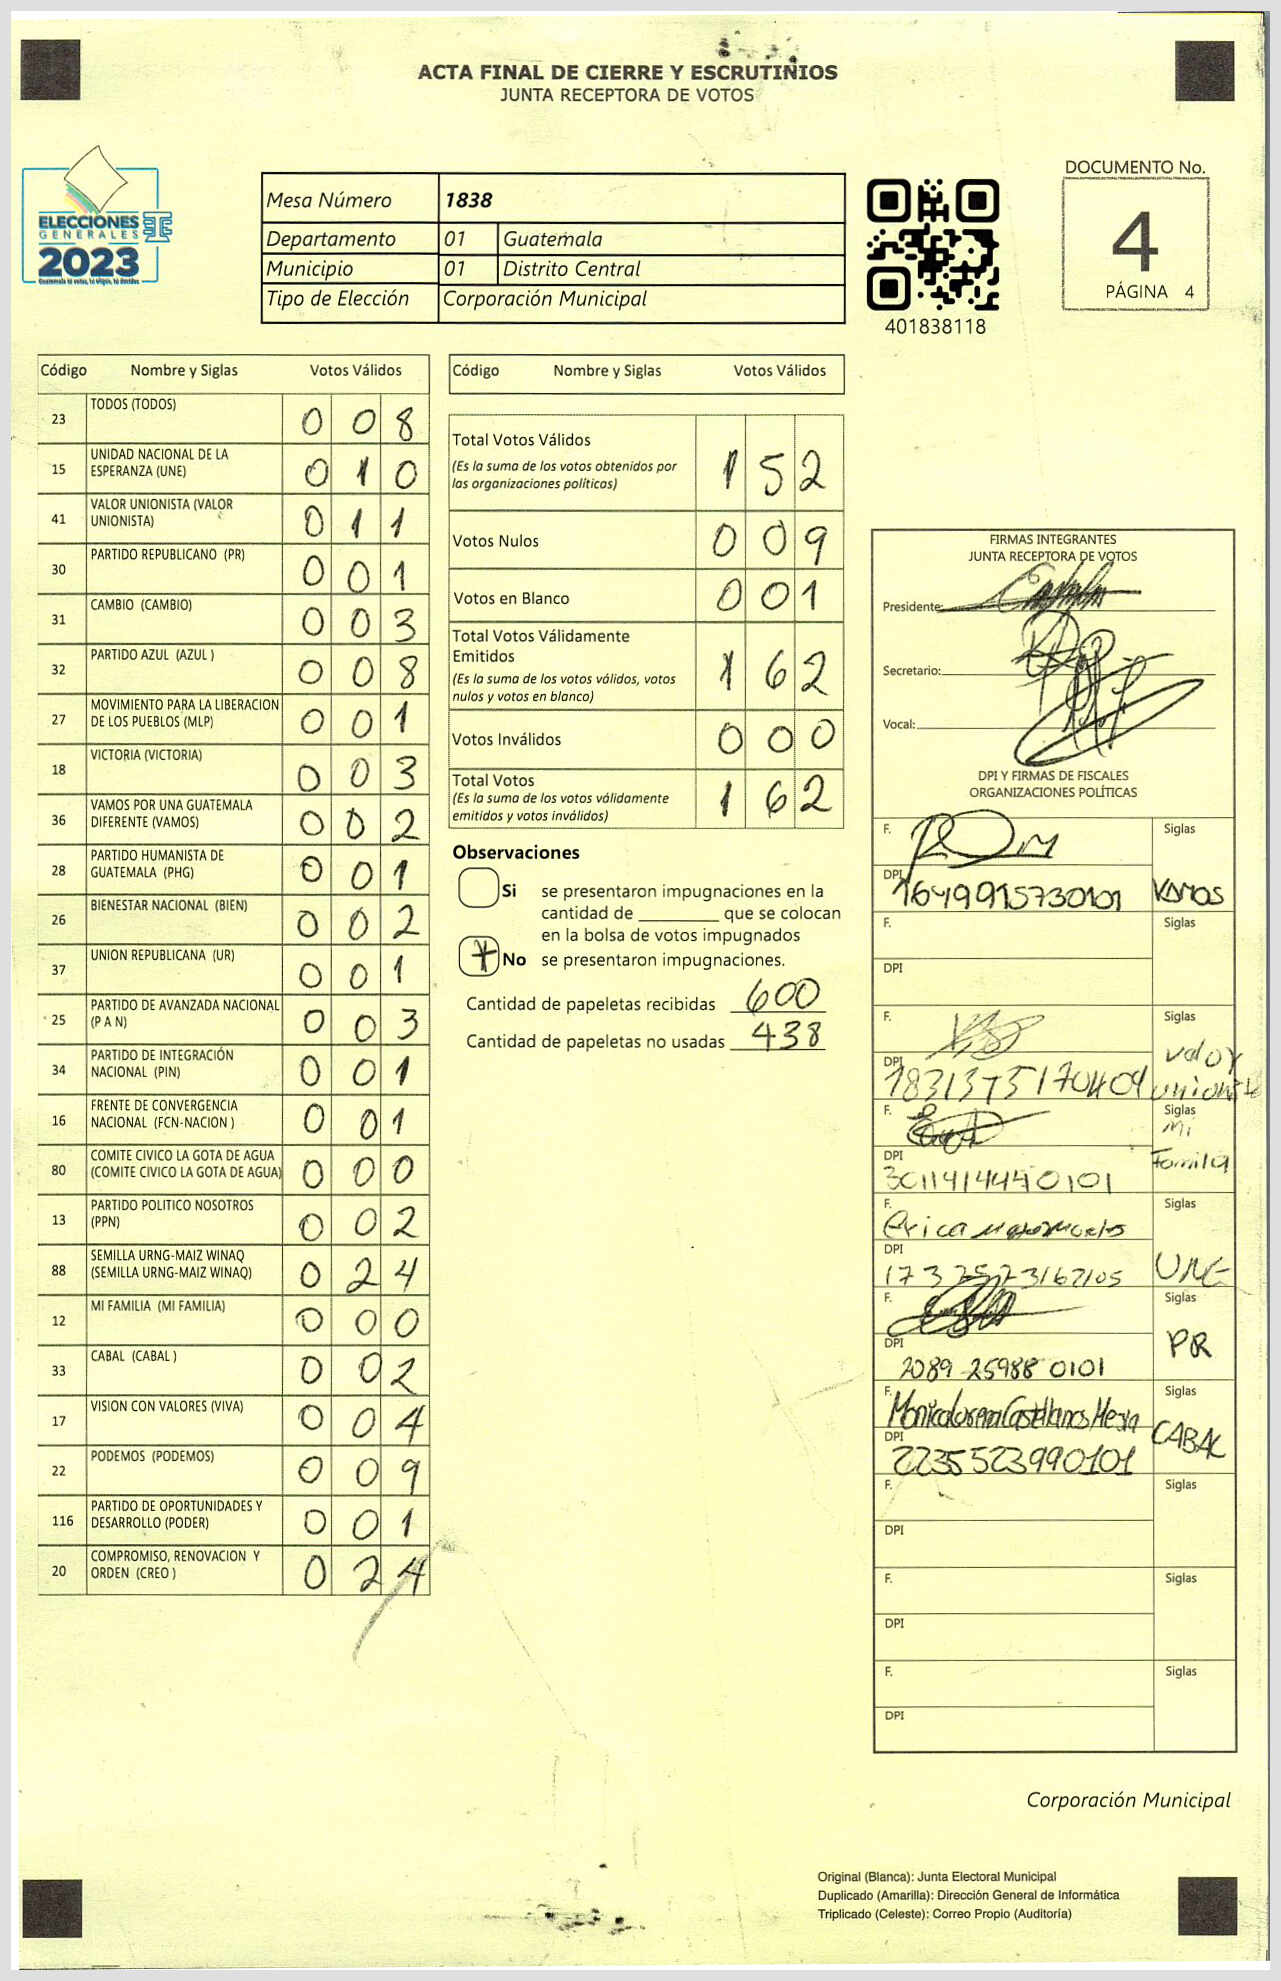 ACTA FINAL DE CIERRE Y ESCRUTINIOS
JUNTA RECEPTORA DE VOTOS
ELECCIONES
GENERALES
2023
Guatemala tú votas, tú eliges, tú decides
Mesa Número 1838
Departamento 01 Guatemala
Municipio 01 Distrito Central
Tipo de Elección Corporación Municipal
401838118
DOCUMENTO No.
4
PÁGINA 4
Código Nombre y Siglas Votos Válidos
23 TODOS (TODOS) 0 0 8
15 UNIDAD NACIONAL DE LA
ESPERANZA (UNE) 0 1 0
41 VALOR UNIONISTA (VALOR
UNIONISTA) 0 1 1
30 PARTIDO REPUBLICANO (PR) 0 0 1
31 CAMBIO (CAMBIO) 0 0 3
32 PARTIDO AZUL (AZUL ) 0 0 8
27 MOVIMIENTO PARA LA LIBERACION
DE LOS PUEBLOS (MLP) 0 0 1
18 VICTORIA (VICTORIA) 0 0 3
36 VAMOS POR UNA GUATEMALA
DIFERENTE (VAMOS) 0 0 2
28 PARTIDO HUMANISTA DE
GUATEMALA (PHG) 0 0 1
26 BIENESTAR NACIONAL (BIEN) 0 0 2
37 UNION REPUBLICANA (UR) 0 0 1
25 PARTIDO DE AVANZADA NACIONAL
(P A N) 0 0 3
34 PARTIDO DE INTEGRACIÓN
NACIONAL (PIN) 0 0 1
16 FRENTE DE CONVERGENCIA
NACIONAL (FCN-NACION ) 0 0 1
80 COMITE CIVICO LA GOTA DE AGUA
(COMITE CIVICO LA GOTA DE AGUA) 0 0 0
13 PARTIDO POLITICO NOSOTROS
(PPN) 0 0 2
88 SEMILLA URNG-MAIZ WINAQ
(SEMILLA URNG-MAIZ WINAQ) 0 2 4
12 MI FAMILIA (MI FAMILIA) 0 0 0
33 CABAL (CABAL ) 0 0 2
17 VISION CON VALORES (VIVA) 0 0 4
22 PODEMOS (PODEMOS) 0 0 9
116 PARTIDO DE OPORTUNIDADES Y
DESARROLLO (PODER) 0 0 1
20 COMPROMISO, RENOVACION Y
ORDEN (CREO ) 0 2 4
Código Nombre y Siglas Votos Válidos
Total Votos Válidos
(Es la suma de los votos obtenidos por
las organizaciones políticas) 1 5 2
Votos Nulos 0 0 9
Votos en Blanco 0 0 1
Total Votos Válidamente
Emitidos
(Es la suma de los votos válidos, votos
nulos y votos en blanco) 1 6 2
Votos Inválidos 0 0 0
Total Votos
(Es la suma de los votos válidamente
emitidos y votos inválidos) 1 6 2
Observaciones
Si se presentaron impugnaciones en la
cantidad de ________ que se colocan
en la bolsa de votos impugnados
No se presentaron impugnaciones.
Cantidad de papeletas recibidas 600
Cantidad de papeletas no usadas 438
FIRMAS INTEGRANTES
JUNTA RECEPTORA DE VOTOS
Presidente:
Secretario:
Vocal:
DPI Y FIRMAS DE FISCALES
ORGANIZACIONES POLÍTICAS
F. Siglas
DPI 1649915730101 VAMOS
F. Siglas
DPI
F. Siglas
DPI 1831375170409 Valor Unionista
F. Siglas
DPI 3011414440101 Mi Familia
F. Erica Siglas
DPI UNE
F. Siglas
DPI 2089 25988 0101 PR
F. Monica Lorena Castellanos Mejia Siglas
DPI 2235523990101 CABAL
F. Siglas
DPI
F. Siglas
DPI
F. Siglas
DPI
Corporación Municipal
Original (Blanca): Junta Electoral Municipal
Duplicado (Amarilla): Dirección General de Informática
Triplicado (Celeste): Correo Propio (Auditoría)